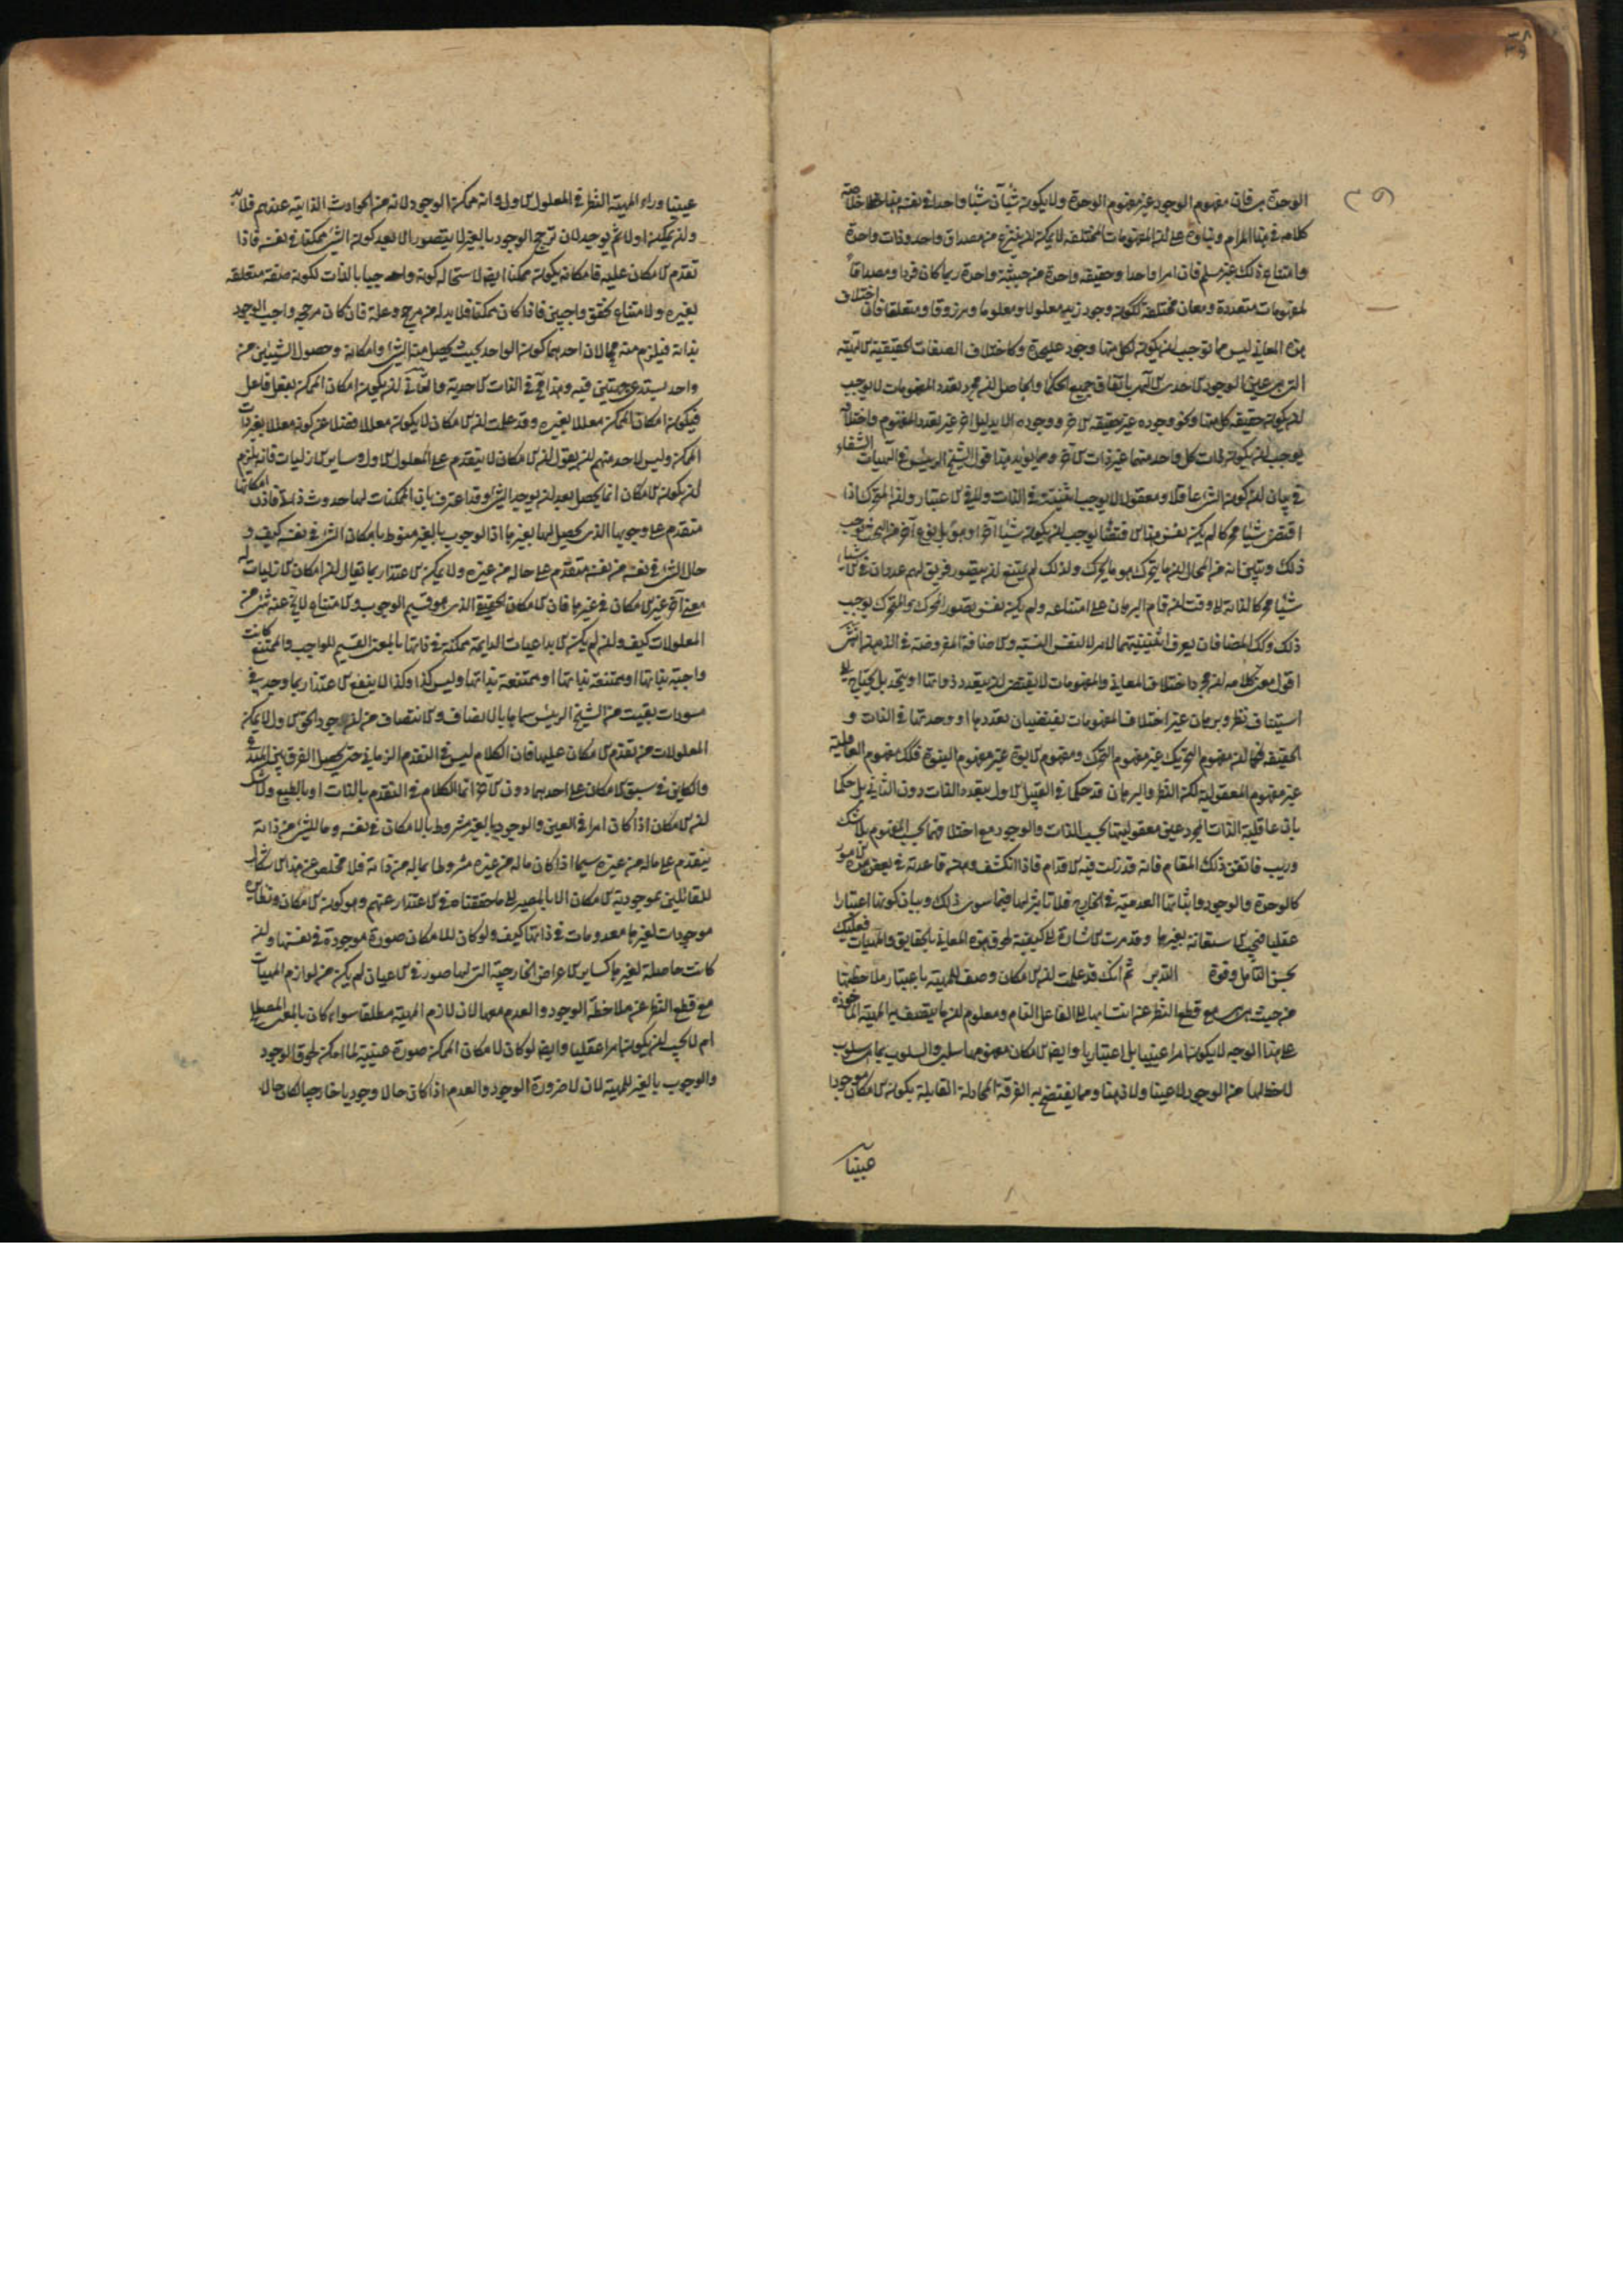 الوحدة بر فان مفهوم الوجود غير مفهوم الوحدة ولا يكون شيئان شيئا واحدا في نفسه هذا خلاصة
كلامه في هذا المرام وبناؤه على ان المفهومات المختلفة لا يمكن ان ينتزع من مصداق واحد وذات واحدة
وامتناع ذلك غير مسلم فان امرا واحدا وحقيقة واحدة من حيثية واحدة ربما كان فردا ومصداقا
لمفهومات متعددة ومعان مختلفة ككون وجود زيد معلولا ومعلوما ومرزوقا ومتعلقا فان اختلاف
هذه المعاني ليس مما توجب ان يكون لكل منها وجود عليحدة وكاختلاف الصفات الحقيقية الالهية
التي هي عين الوجود الاحدي الالهي باتفاق جميع الحكماء والحاصل ان مجرد تعدد المفهومات لا يوجب
ان يكون حقيقة كل منها ونحو وجوده غير حقيقة الاخر ووجوده الا بدليل اخر غير تعدد المفهوم واختلافه
يوجب ان يكون ذات كل واحد منهما غير ذات الاخر ومما يؤيد هذا قول الشيخ الرئيس في الهيات الشفاء
في بيان ان كون الشئ عاقلا ومعقولا لا يوجب اثنينية في الذات ولا في الاعتبار ولان المتحرك اذا
اقتضى شيئا محركا لم يكن نفس هذا الاقتضاء يوجب ان يكون شيئا اخر او هو بل نوع اخر من البحث يوجب
ذلك ويبين انه من المحال ان ما يتحرك هو ما يحرك ولذلك لم يمتنع ان يتصور فريق لهم عدد ان في الاشياء
شيئا محركا لذاته الى وقت ان قام البرهان على امتناعه ولم يكن نفس تصور المحرك والمتحرك يوجب
ذلك وكذلك المضافان يعرف اثنينيتهما لامر لا لنفس النسبة والاضافة المفروضة في الذهن انتهى
اقول معنى كلامه ان مجرد اختلاف المعاني والمفهومات لا يقتضي ان يتعدد ذواتها او يتحد بل يحتاج الى
استيناف نظر وبرهان غير اختلاف المفهومات يقتضيان تعددها او وحدتها في الذات و
الحقيقة فكما ان مفهوم التحريك غير مفهوم التحرك ومفهوم الابوة غير مفهوم البنوة فكذلك مفهوم العاقلية
غير مفهوم المعقولية لكن النظر والبرهان قد حكما في القبيل الاول بتعدد الذات دون الثاني بل حكما
بان عاقلية الذات المجرد عين معقوليتها بحسب الذات والوجود مع اختلافهما بحسب المفهوم بلا شك
وريب فاتقن ذلك المقام فانه قد زلت فيه الاقدام فاذا انكشف وهن قاعدته في بعض من الامور
كالوحدة والوجود واثباتها العدمية في الخارج فلا تاثير لها فيما سوى ذلك وبيان كونها اعتبارا
عقليا فيجب الاستعانة بغيرها وقد مرت الاشارة الى كيفية لحوق هذه المعاني بالحقايق والمهيات فعليك
بحسن التامل وقوة التدبر ثم انك قد علمت ان الامكان وصف للمهية باعتبار ملاحظتها
من حيث هي هي مع قطع النظر عن انتسابها الى الفاعل التام ومعلوم ان ما يتصف به المهية الماخوذة
على هذا الوجه لا يكون امرا عينيا بل اعتباريا وايضا الامكان مفهومه سلب والسلوب بما هي سلوب
لا حظ لها من الوجود لا عينا ولا ذهنا ومما يفتضح به الفرقة المجادلة القايلة بكون الامكان موجودا
عينيا
عينيا وراء المهية النظر في المعلول الاول وانه ممكن الوجود لانه من الحوادث الذاتية عندهم فلا بد
وان يمكن اولا ثم يوجد لان ترجح الوجود بالغير لا يتصور الا بعد كون الشئ ممكنا في نفسه فاذا
تقدم الامكان عليه فامكانه يكون ممكنا ايضا لاستحالة كونه واجبا بالذات لكونه صفة متعلقة
بغيره ولامتناع تحقق واجبين فاذا كان ممكنا فلا بد له من مرجح وعلة فان كان مرجحه واجب الوجود
بذاته فيلزم منه محالان احدهما كون الواحد بحيث يحصل منه الشئ وامكانه وحصول الشيئين من
واحد يستدعي جهتين فيه وهذا مح في الذات الاحدية والثاني ان يكون امكان الممكن بفعل فاعل
فيكون امكان الممكن معللا بغيره وقد علمت ان الامكان لا يكون معللا فضلا عن كونه معللا بغير ذات
الممكن وليس لاحد منهم ان يقول ان الامكان لا يتقدم على المعلول الاول وساير الازليات فانه يلزم
ان يكون الامكان انما يحصل بعد ان يوجد الشئ وقد اعترف بان الممكنات لها حدوث ذاتي فاذن امكانها
متقدم على وجوبها الذي يحصل لها بغيرها اذ الوجوب بالغير منوط بامكان الشئ في نفسه كيف و
حال الشئ في نفسه من نفسه متقدم على حاله من غيره ولا يمكن الاعتذار بما يقال ان امكان الازليات له
معنى اخر غير الامكان في غيرها فان الامكان الحقيقي الذي هو قسيم الوجوب والامتناع لا يخ عنه شئ من
المعلولات كيف وان لم يكن الابداعيات الدايمة ممكنة في ذاتها بالمعنى القسيم للواجب والممتنع كانت
واجبة بذاتها او ممتنعة بذاتها وليس كذا وكذا لا ينفع الاعتذار بما وجد في
مسودات بقيت من الشيخ الرئيس سماها بالانصاف والانتصاف من ان الموجود الحق الاول لا يمكن
المعلولات من تقدم الامكان عليها فان الكلام ليس في التقدم الزماني حتى يحصل الفرق بين المبدع
والكاين في سبق الامكان على احدهما دون الاخر انما الكلام في التقدم بالذات او بالطبع ولا شك
ان الامكان اذا كان امرا في العين والوجود بالغير مشروط بالامكان في نفسه وما للشئ من ذاته
يتقدم على ماله من غيره سيما اذا كان ماله من غيره مشروطا بماله من ذاته فلا مخلص عن هذا الاشكال
للقائلين بموجودية الامكان الا بالمصير الى ما حققناه في الاعتذار عنهم وهو كون الامكان ونظايره
موجودات لغيرها معدومات في ذاتها كيف ولو كان للامكان صورة موجودة في نفسها وان
كانت حاصلة لغيرها كساير الاعراض الخارجية التي لها صور في الاعيان لم يكن من لوازم المهيات
مع قطع النظر عن ملاحظة الوجود والعدم معها لان لازم المهية مطلقا سواء كان بالمعنى المصطلح
ام لا يجب ان يكون امرا عقليا وايضا لو كان لامكان الممكن صورة عينية لما امكن لحوق الوجود
والوجوب بالغير للمهية لان لا ضرورة الوجود والعدم اذا كان حالا وجوديا خارجيا لكان حالا